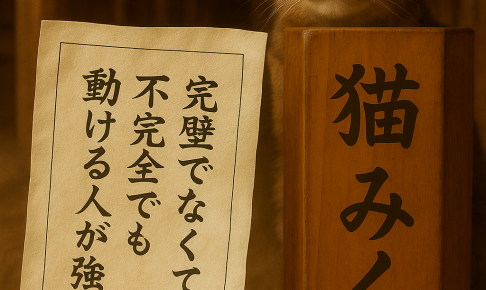 完璧でなくて
不完全でも
動ける人が強
猫みく